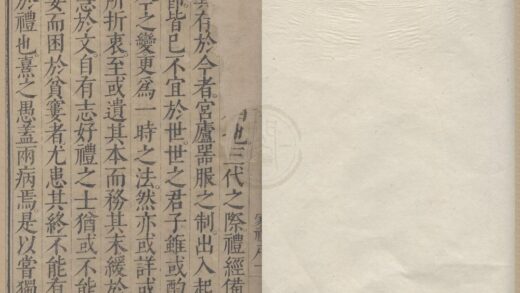 三代之際禮經備
有於今者宮廬器服之制出入起
節皆已不宜於世世之君子雖或酌
之變更爲一時之法然亦或詳或
所折衷至或遺其本而務其末緩於
於文自有志好禮之士猶或不能
要而困於貧窶者尤患其終不能有
於禮也熹之愚蓋兩病焉是以嘗獨